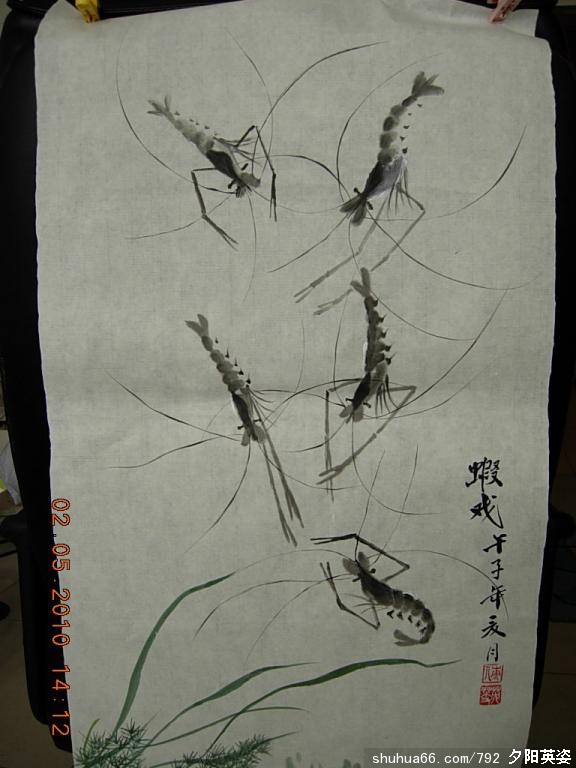 蝦戏 午子年夏月
02.05.2010 14:12
shuhua66.com/792 夕阳英姿